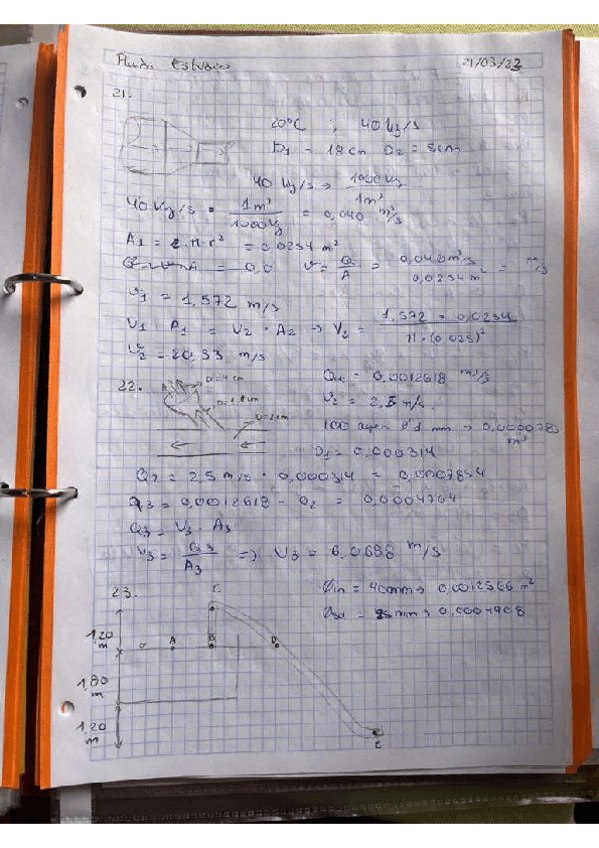 Fluidos Estudios 21/03/23
21.
20°C ; 40 Kg/s
D1 = 18cm D2 = 5cm
40 Kg/s → 1000 Kg / 1m³
40 Kg/s · 1m³ / 1000Kg = 0,040 m³/s
A1 = π·r² = 0,0254 m²
v = Q/A = 0,040 m³/s / 0,0254 m² = m/s
v1 = 1,572 m/s
V1 · A1 = V2 · A2 → V2 = 1,572 · 0,0254 / π·(0,025)²
v2 = 20,33 m/s
22.
D=4cm
D=2cm
Q1 = 0,0012618 m³/s
v2 = 2,5 m/s
100 1 mm → 0,0000785 m³
0,000314
Q2 = 2,5 m/s · 0,000314 = 0,0007854
Q3 = 0,0012618 - Q2 = 0,0004764
Q3 = V3 · A3
V3 = Q3/A3 => V3 = 6,0688 m/s
23.
C
Øin = 40mm → 0,0012566 m²
Øsal = 25mm → 0,0004908
1,20 m
A
B
D
1,80 m
1,20 m
E